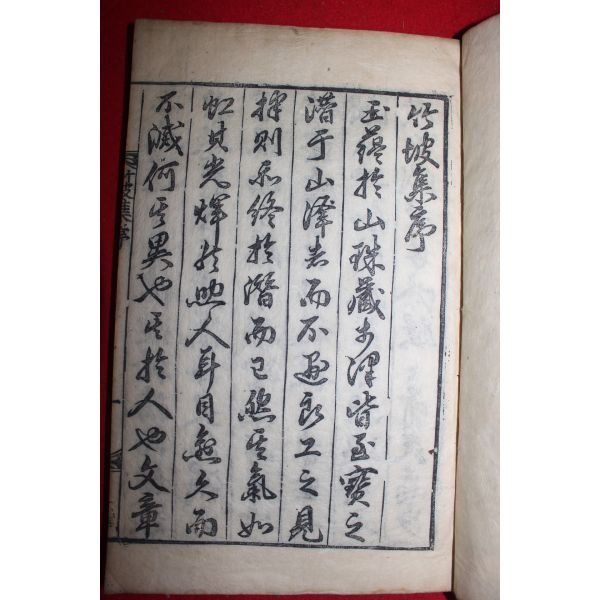 竹坡集序
玉蘊於山珠藏於澤皆至寶之
潛于山澤者而不遇良工之見
採則亦終於潛而已然其氣如
虹其光燁然照人耳目愈久而
不滅何其異也其於人也文章
竹坡集序